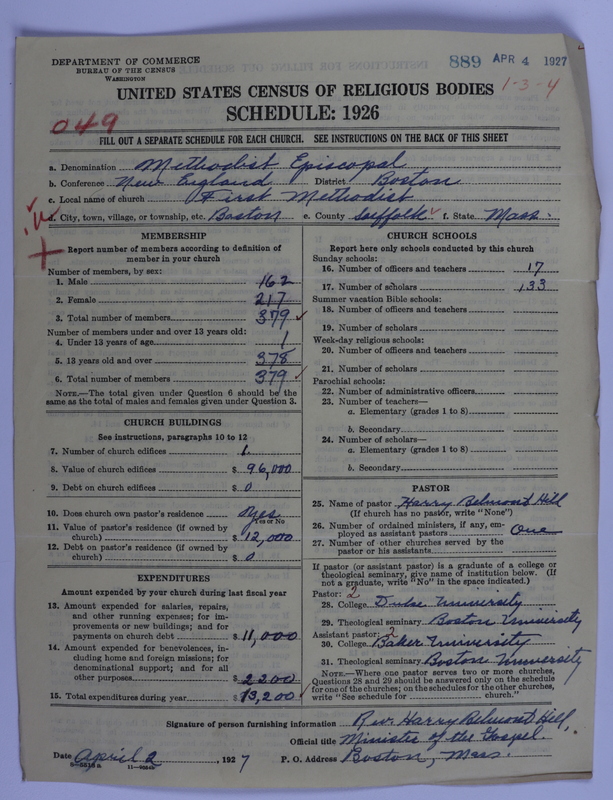 DEPARTMENT OF COMMERCE
BUREAU OF THE CENSUS
WASHINGTON
889 APR 4 1927
1-3-4
UNITED STATES CENSUS OF RELIGIOUS BODIES
SCHEDULE: 1926
049
FILL OUT A SEPARATE SCHEDULE FOR EACH CHURCH. SEE INSTRUCTIONS ON THE BACK OF THIS SHEET
a. Denomination Methodist Episcopal
b. Conference New England District Boston
c. Local name of church First Methodist
d. City, town, village, or township, etc. Boston e. County Suffolk f. State Mass.
MEMBERSHIP
Report number of members according to definition of
member in your church
Number of members, by sex:
1. Male 162
2. Female 217
3. Total number of members 379
Number of members under and over 13 years old:
4. Under 13 years of age 1
5. 13 years old and over 378
6. Total number of members 379
NOTE.—The total given under Question 6 should be the
same as the total of males and females given under Question 3.
CHURCH BUILDINGS
See instructions, paragraphs 10 to 12
7. Number of church edifices 1
8. Value of church edifices $ 96,000
9. Debt on church edifices $ 0
10. Does church own pastor's residence yes
Yes or No
11. Value of pastor's residence (if owned by
church) $ 12,000
12. Debt on pastor's residence (if owned by
church) $ 0
EXPENDITURES
Amount expended by your church during last fiscal year
13. Amount expended for salaries, repairs,
and other running expenses; for improvements
or new buildings; and for
payments on church debt $ 11,000
14. Amount expended for benevolences,
including home and foreign missions; for
denominational support; and for all
other purposes $ 2200
15. Total expenditures during year $ 13,200
CHURCH SCHOOLS
Report here only schools conducted by this church
Sunday schools:
16. Number of officers and teachers 17
17. Number of scholars 133
Summer vacation Bible schools:
18. Number of officers and teachers
19. Number of scholars
Week-day religious schools:
20. Number of officers and teachers
21. Number of scholars
Parochial schools:
22. Number of administrative officers
23. Number of teachers—
a. Elementary (grades 1 to 8)
b. Secondary
24. Number of scholars—
a. Elementary (grades 1 to 8)
b. Secondary
PASTOR
25. Name of pastor Harry Belmont Hill
(If church has no pastor, write "None")
26. Number of ordained ministers, if any, employed
as assistant pastors One
27. Number of other churches served by the
pastor or his assistants
If pastor (or assistant pastor) is a graduate of a college or
theological seminary, give name of institution below. (If
not a graduate, write "No" in the space indicated.)
Pastor: 2
28. College University
29. Theological seminary Boston University
Assistant pastor: 2
30. College Baker University
31. Theological seminary Boston University
NOTE.—Where one pastor serves two or more churches,
Questions 28 and 29 should be answered only on the schedule
for one of the churches; on the schedules for the other churches,
write "See schedule for church."
Signature of person furnishing information Rev. Harry Belmont Hill,
Official title Minister of the Gospel
Date April 2, 1927 P. O. Address Boston, Mass.